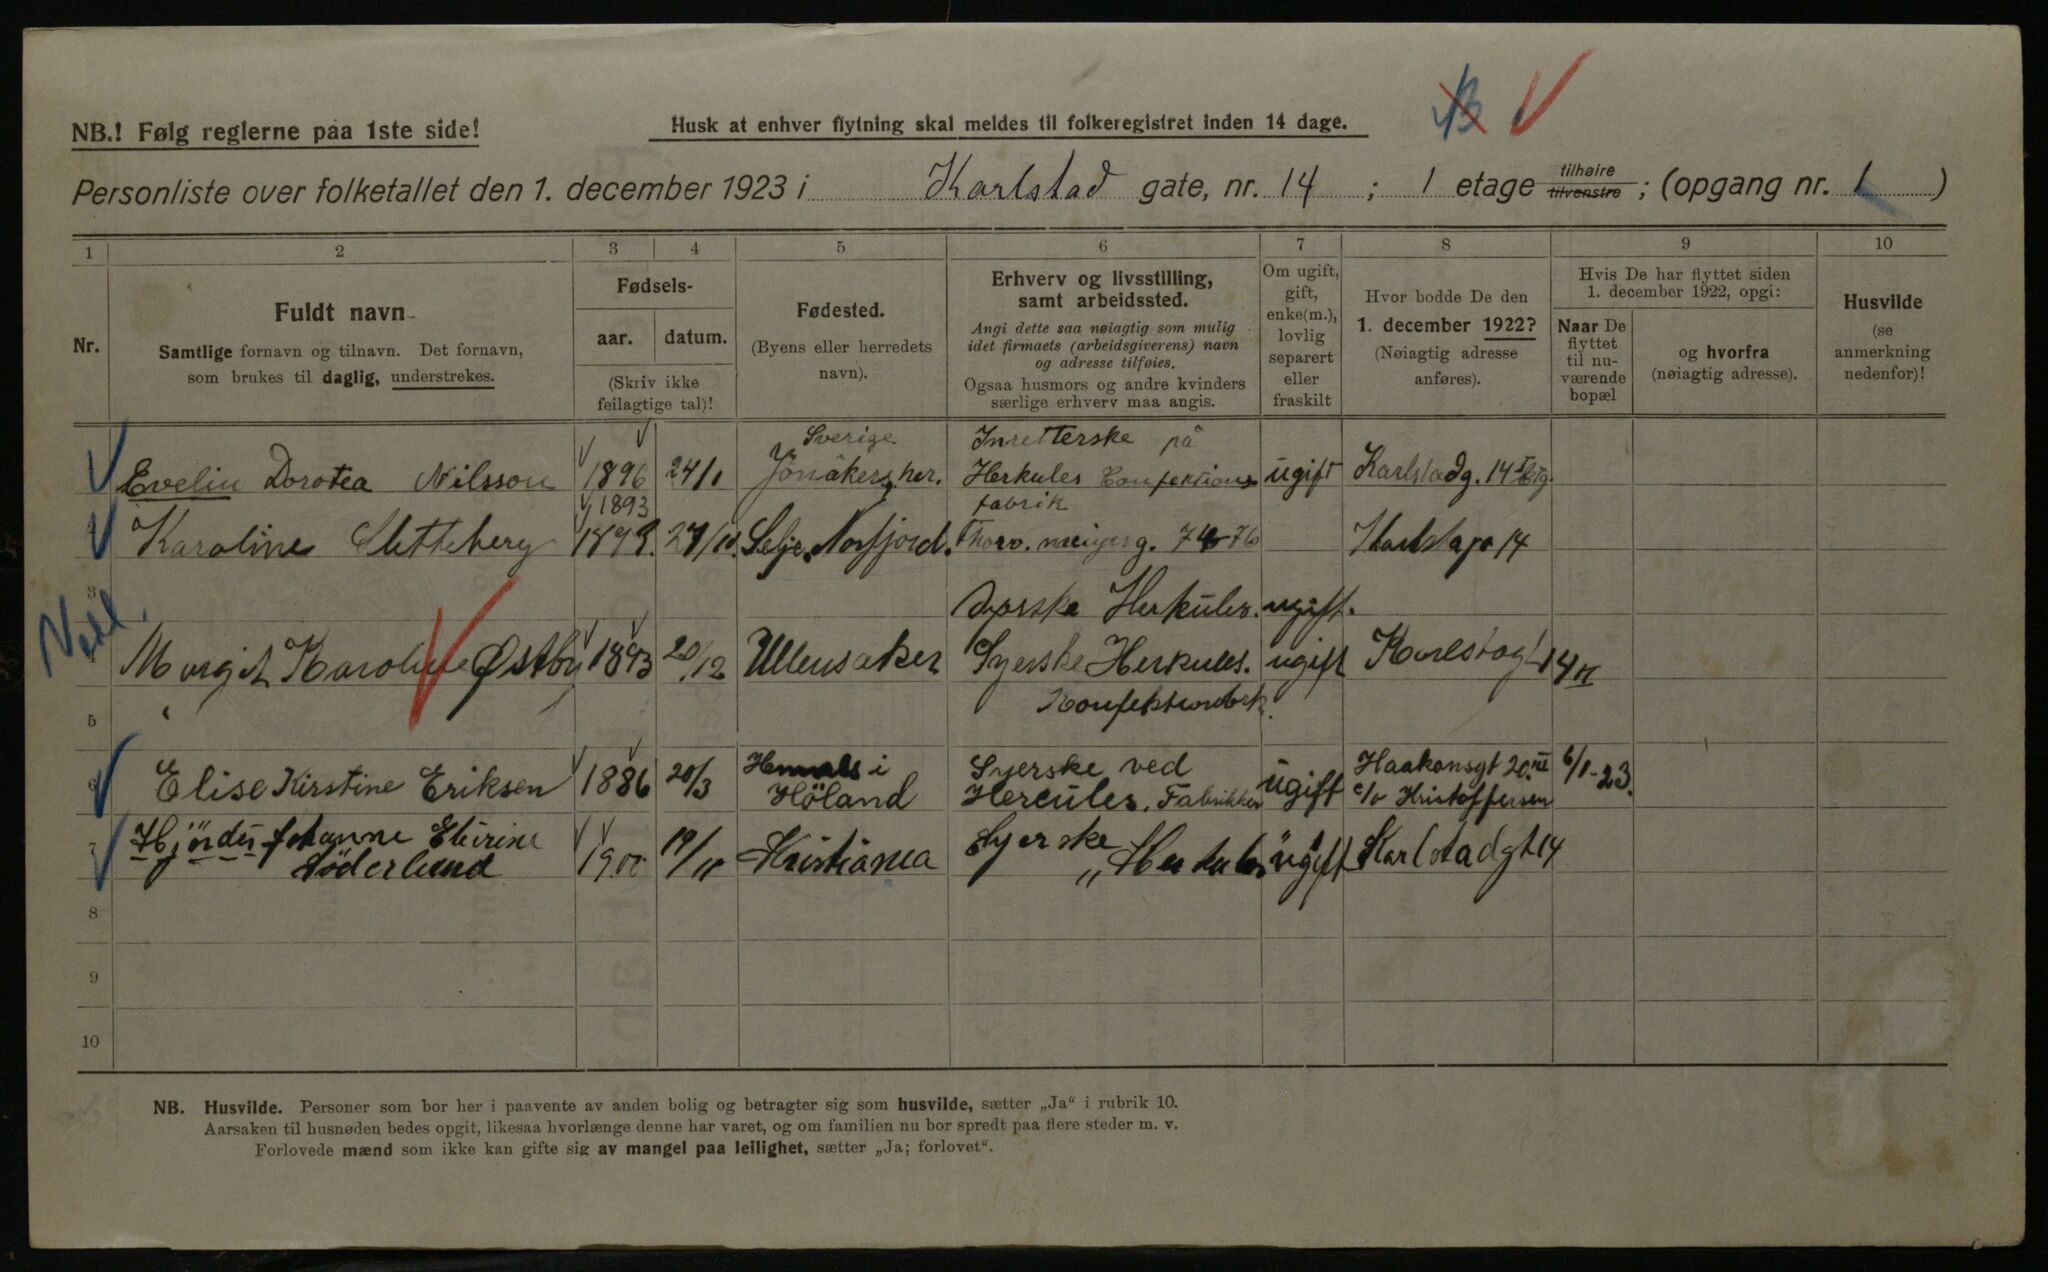 NB.! Følg reglerne paa 1ste side!
Husk at enhver flytning skal meldes til folkeregistret inden 14 dage.
Personliste over folketallet den 1. december 1923 i Karlstad gate, nr. 14 ; 1 etage tilhøire tilvenstre ; (opgang nr. 1 )
1 2 3 4 5 6 7 8 9 10
Nr.
Fuldt navn
Samtlige fornavn og tilnavn. Det fornavn,
som brukes til daglig, understrekes.
Fødsels-
aar. datum.
(Skriv ikke
feilagtige tal)!
Fødested.
(Byens eller herredets
navn).
Erhverv og livsstilling,
samt arbeidssted.
Angi dette saa nøiagtig som mulig
idet firmaets (arbeidsgiverens) navn
og adresse tilføies.
Ogsaa husmors og andre kvinders
særlige erhverv maa angis.
Om ugift,
gift,
enke(m.),
lovlig
separert
eller
fraskilt
Hvor bodde De den
1. december 1922?
(Nøiagtig adresse
anføres).
Hvis De har flyttet siden
1. december 1922, opgi:
Naar De
flyttet
til nu-
værende
bopæl
og hvorfra
(nøiagtig adresse).
Husvilde
(se
anmerkning
nedenfor)!
Sverige. Inretterske på
Evelin Dorotea Nilsson 1896 24/1 Jönåkers her. Herkules Confektions ugift Karlstadg. 14 I Etg.
1893 fabrik
Karoline Sletteberg 1893. 27/10. Selje, Norfjord. Thorv. meiyer g. 74-76 14
3 Syerske Herkules. ugift.
4 Margit Karoline Østby 1893 20/12 Ullensaker Syerske Herkules. ugift Karlstagt 14 II
5
6 Elise Kirstine Eriksen 1886 20/3 i Syerske ved ugift Haakonsgt 20. III 6/1-23.
Höland Hercules. Fabrikker c/o Kristoffersen
7 Hjördis Johanne 1900 19/11 Kristiania Syerske ugift Karlstadgt 14
Söderlund „Herkules"
8
9
10
NB. Husvilde. Personer som bor her i paavente av anden bolig og betragter sig som husvilde, sætter „Ja" i rubrik 10.
Aarsaken til husnøden bedes opgit, likesaa hvorlænge denne har varet, og om familien nu bor spredt paa flere steder m. v.
Forlovede mænd som ikke kan gifte sig av mangel paa leilighet, sætter „Ja; forlovet".